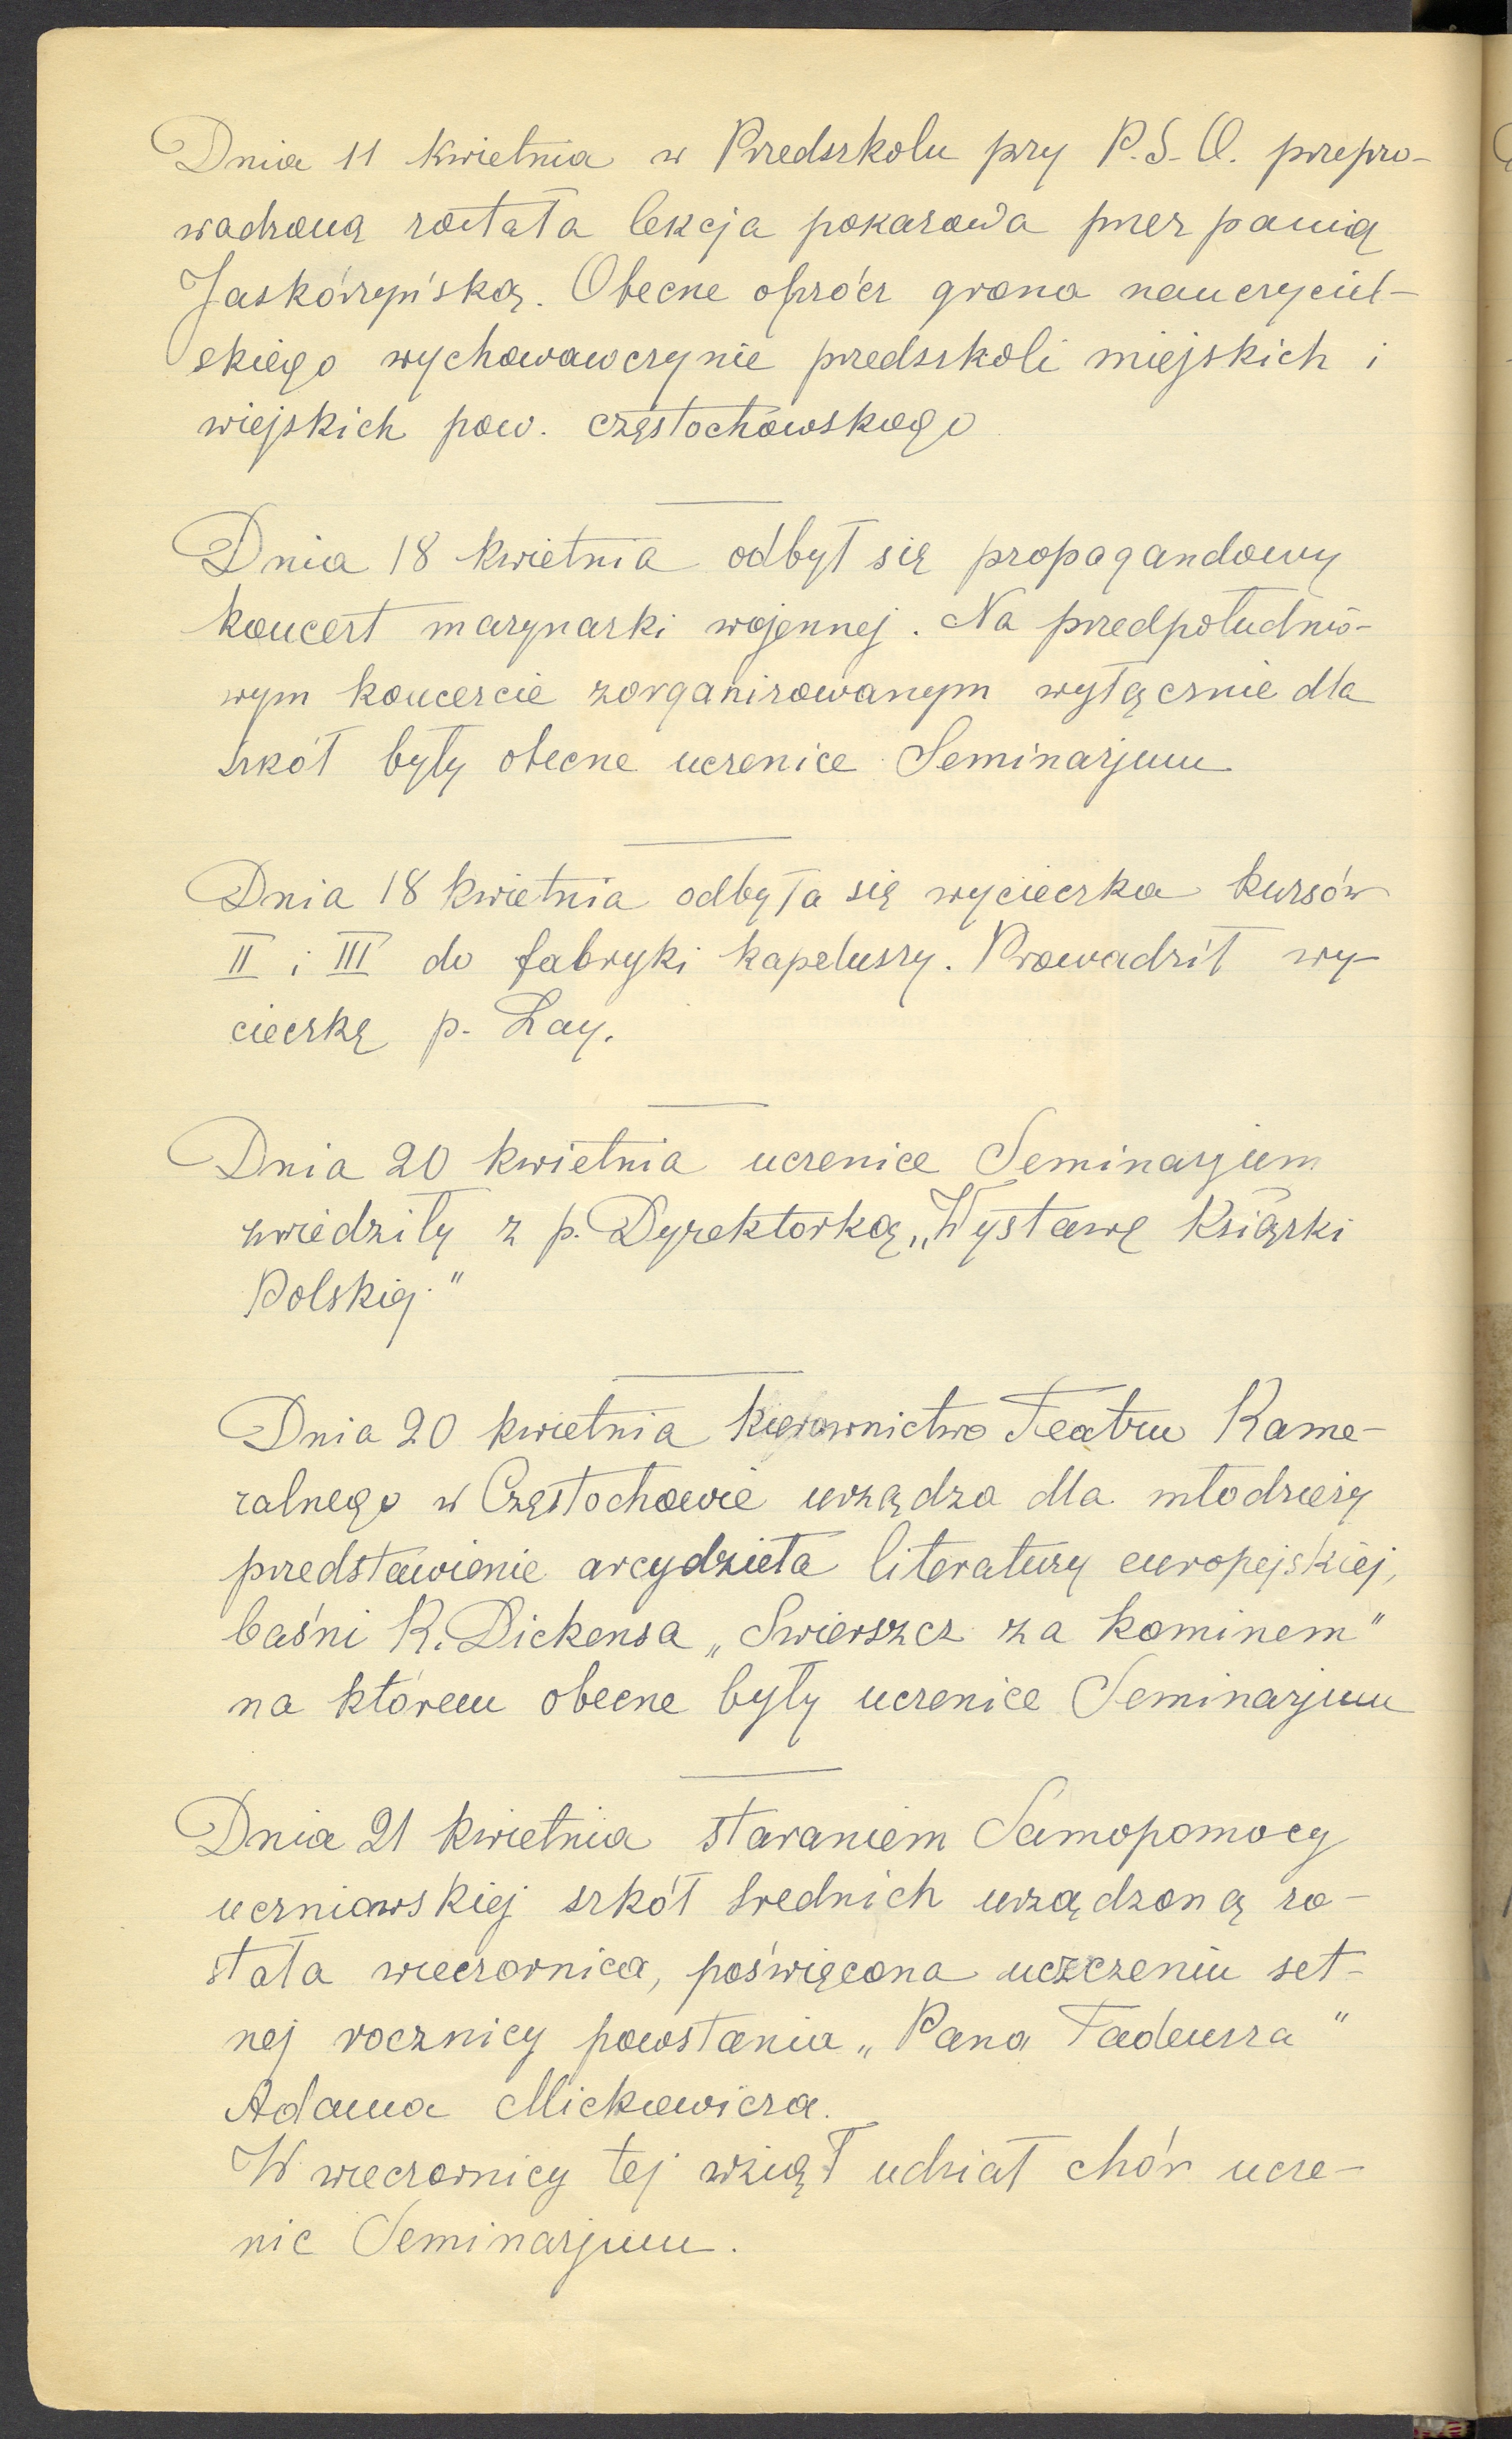 Dnia 11 kwietnia w Przedszkolu przy P.S.O. przepro-
wadzoną została lekcja pokazowa przez panią
Jaskórzyńską. Obecne oprócz grona nauczyciel-
skiego wychowawczynie przedszkoli miejskich i
wiejskich pow. częstochowskiego
Dnia 18 kwietnia odbył się propagandowy
koncert marynarki wojennej. Na przedpołudnio-
wym koncercie zorganizowanym wyłącznie dla
szkół były obecne uczenice Seminarjum
Dnia 18 kwietnia odbyła się wycieczka kursów
II i III do fabryki kapeluszy. Prowadził wy-
cieczkę p. Lay.
Dnia 20 kwietnia uczenice Seminarjum
zwiedziły z p. Dyrektorką „Wystawę Książki
Polskiej."
Dnia 20 kwietnia kierownictwo Teatru Kame-
ralnego w Częstochowie urządza dla młodzieży
przedstawienie arcydzieła literatury europejskiej,
baśni K. Dickensa „Swierszcz za kominem"
na którem obecne były uczenice Seminarjum
Dnia 21 kwietnia staraniem Samopomocy
uczniowskiej szkół średnich urządzoną zo-
stała wieczornica, poświęcona uczczeniu set-
nej rocznicy powstania „Pana Tadeusza"
Adama Mickiewicza.
W wieczornicy tej wziął udział chór ucze-
nic Seminarjum.